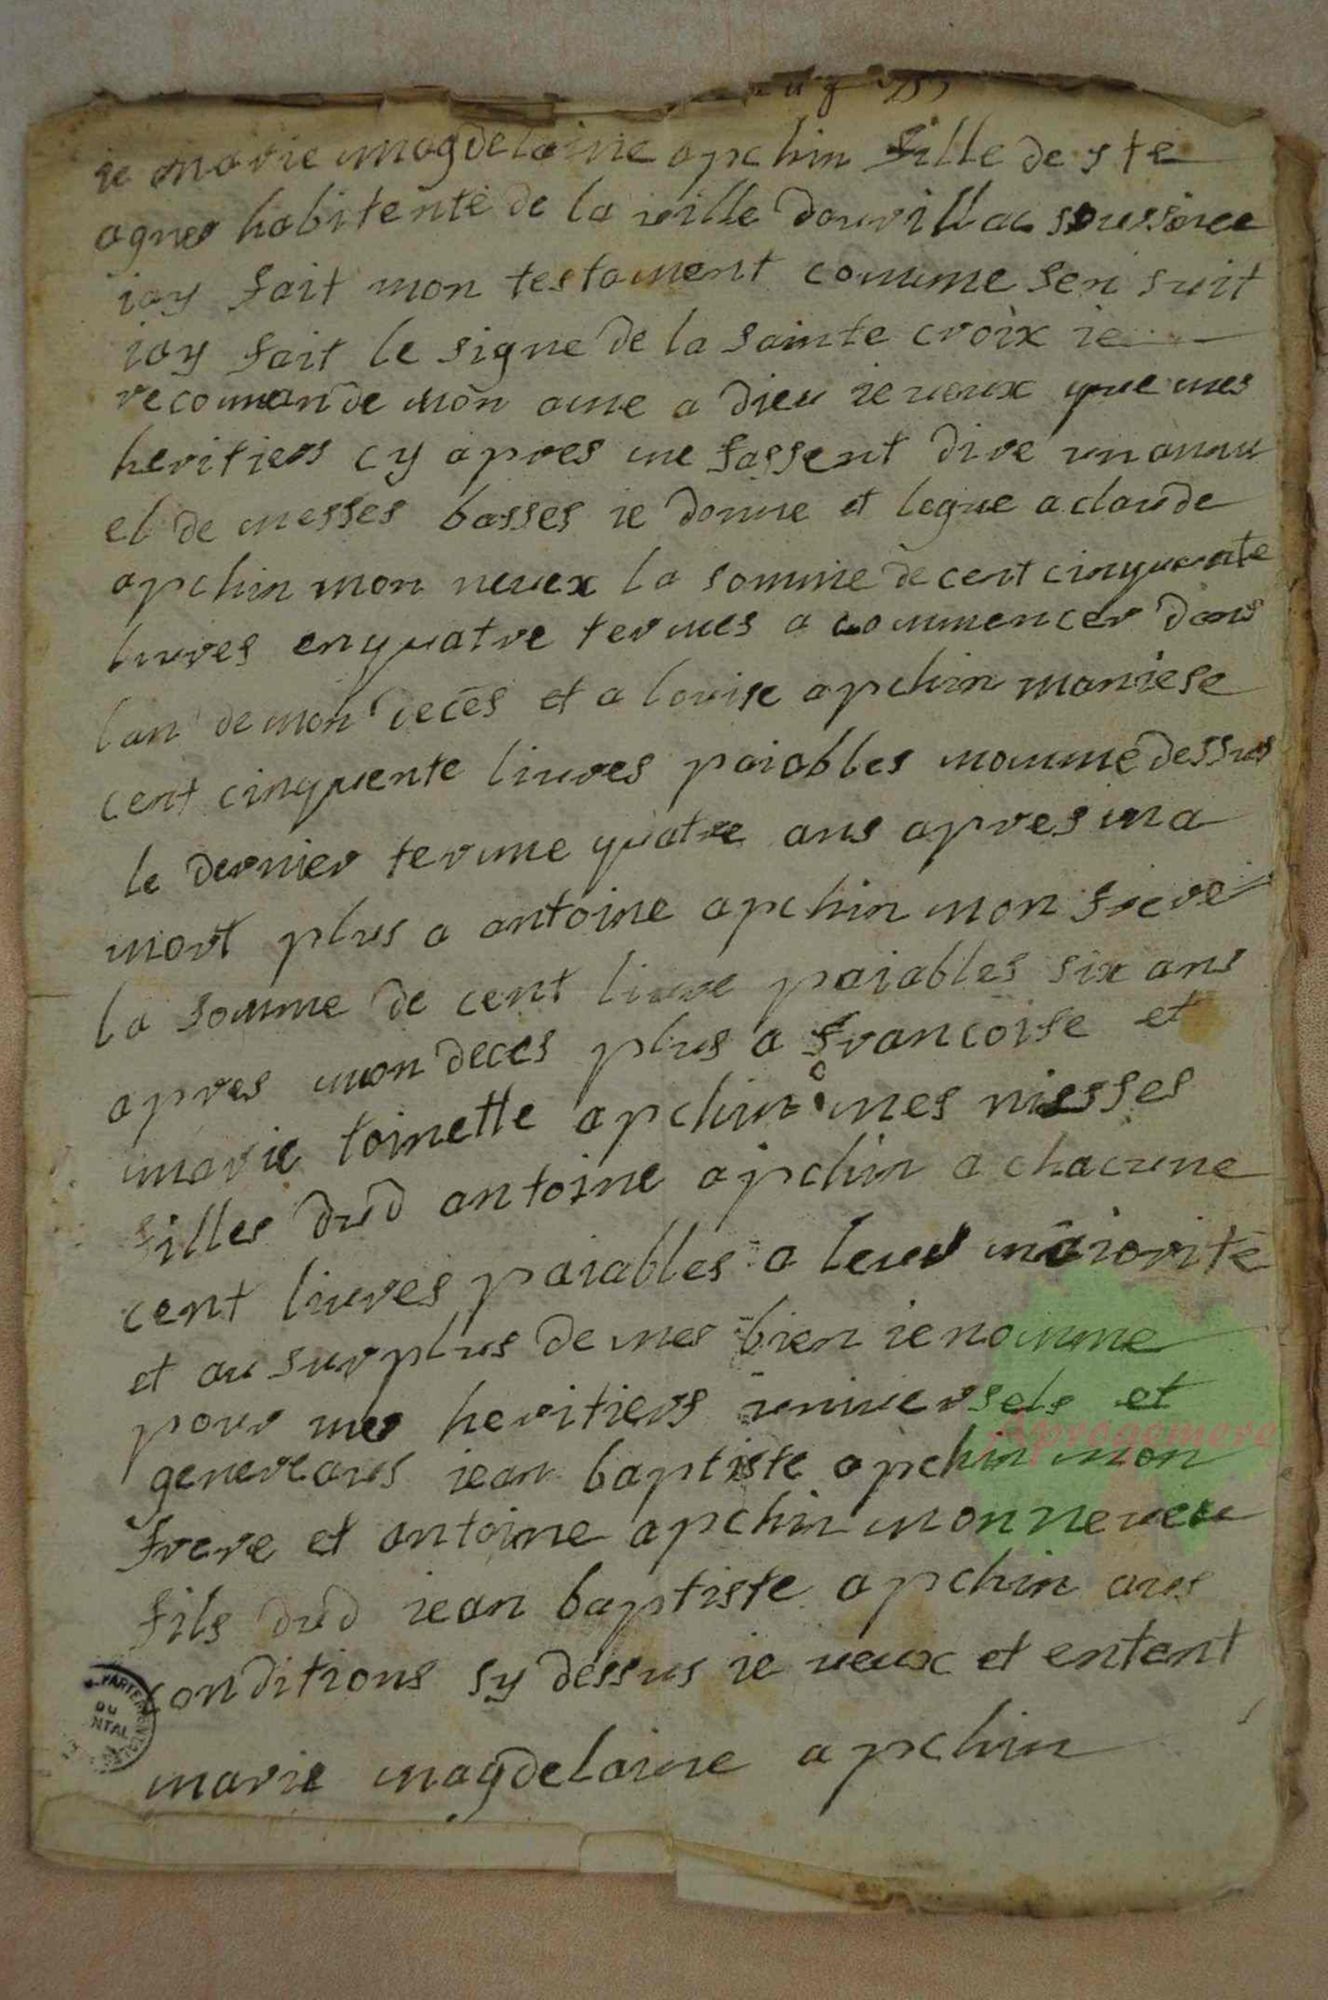 ie marie magdelaine apchin fille de ste
agnes habitente de la ville daurillac soussinee
iay fait mon testament comme sen suit
iay fait le signe de la sainte croix ie
recommande mon ame a dieu ie veux que mes
heritiers cy apres me fassent dire un annu
el de messes basses ie donne et legue a claude
apchin mon neuex la somme de cent cinquante
livres en quatre termes a commencer dans
lan de mon deces et a louise apchin maniese
cent cinquente livres paiables nommé dessus
le dernier terme quatre ans apres ma
mort plus a antoine apchin mon frere
la somme de cent livre paiables six ans
apres mon deces plus a francoise et
marie toinette apchin mes niesses
filles dud antoine apchin a chacune
cent livres paiables a leur maiorité
et au surplus de mes bien ie nomme
pour mes heritiers universels et
genereaus iean baptiste apchin mon
frere et antoine apchin mon neveu
fils dud iean baptiste apchin aus
conditions sy dessus ie veux et entent
marie magdelaine apchin
DU
NTAL
Aprogemere